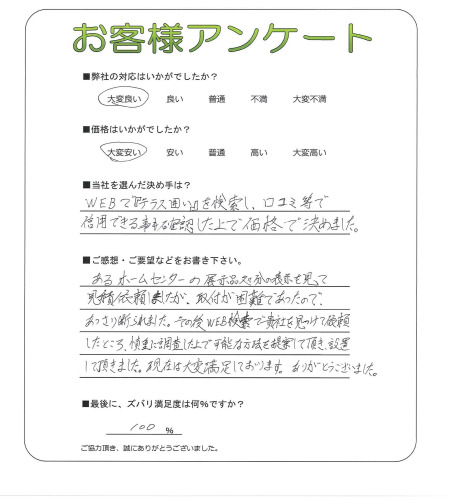 お客様アンケート
■弊社の対応はいかがでしたか？
大変良い 良い 普通 不満 大変不満
■価格はいかがでしたか？
大変安い 安い 普通 高い 大変高い
■当社を選んだ決め手は？
WEBで『テラス囲い』を検索し、口コミ等で
信用できる事を確認した上で価格で決めました。
■ご感想・ご要望などをお書き下さい。
あるホームセンターの展示品処分の表示を見て
見積依頼しましたが、取付が困難であったので、
あっさり断られました。その後WEB検索で貴社を見つけて依頼
したところ、慎重に調査した上で可能な方法を提案して頂き、設置
して頂きました。現在は大変満足しております。ありがとうございました。
■最後に、ズバリ満足度は何%ですか？
100 %
ご協力頂き、誠にありがとうございました。